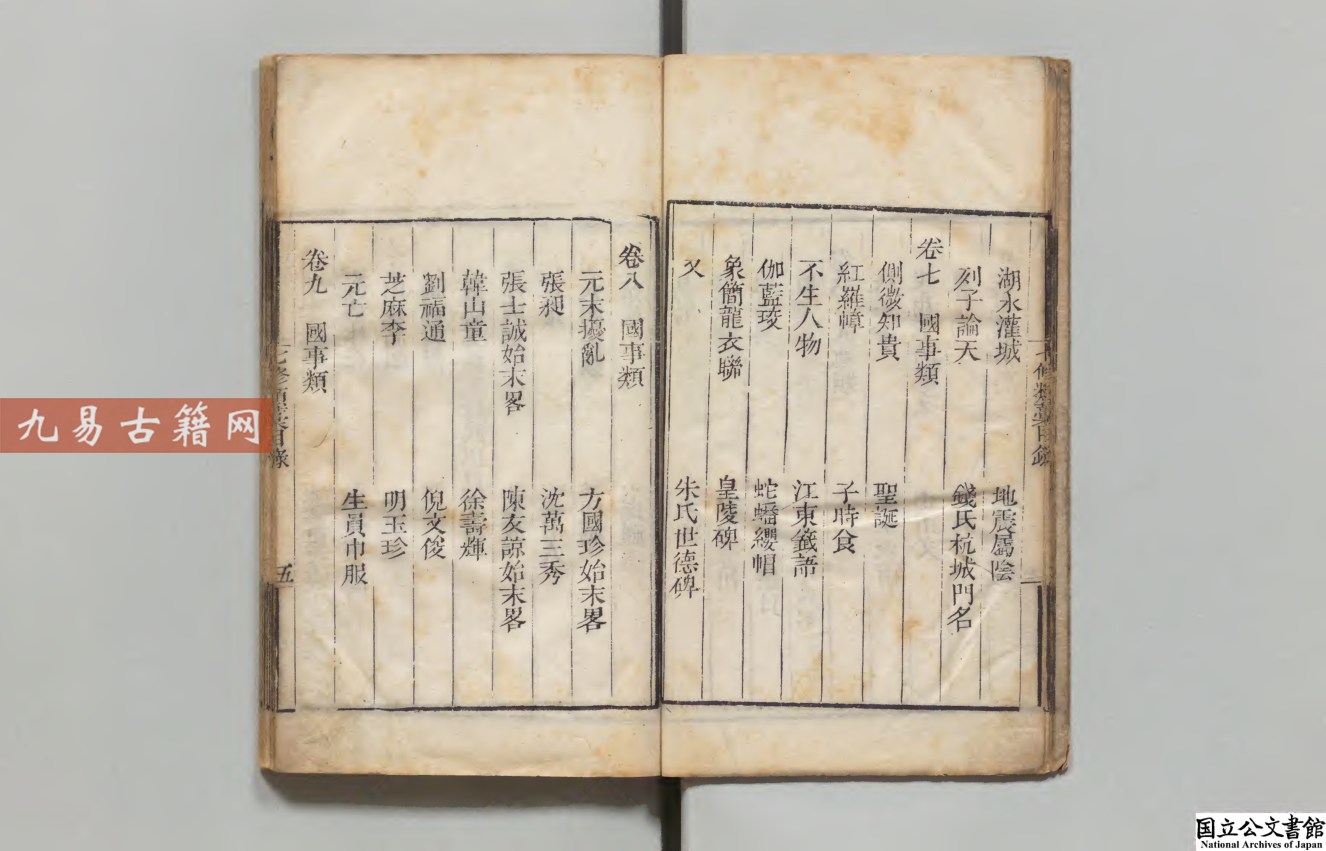 湖水灌城　地震屬陰
列子論天　錢氏杭城門名
卷七　國事類
側微知貴　聖誕
紅羅幛　子時食
不生人物　江東籤語
伽藍珓　蛇蟠纓帽
象簡龍衣聯　皇陵碑
朱氏世德碑
卷八　國事類
元末擾亂　方國珍始末畧
張昶　沈萬三秀
張士誠始末畧　陳友諒始末畧
韓山童　徐壽輝
劉福通　倪文俊
芝麻李　明玉珍
元亡　生員巾服
卷九　國事類
五
九易古籍网
国立公文書館
National Archives of Japan